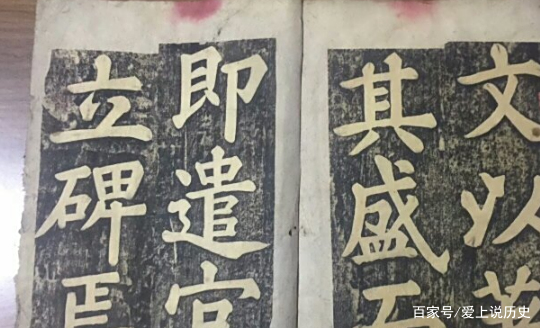 文以
其盛
即遣
立碑
百家号/爱上说历史